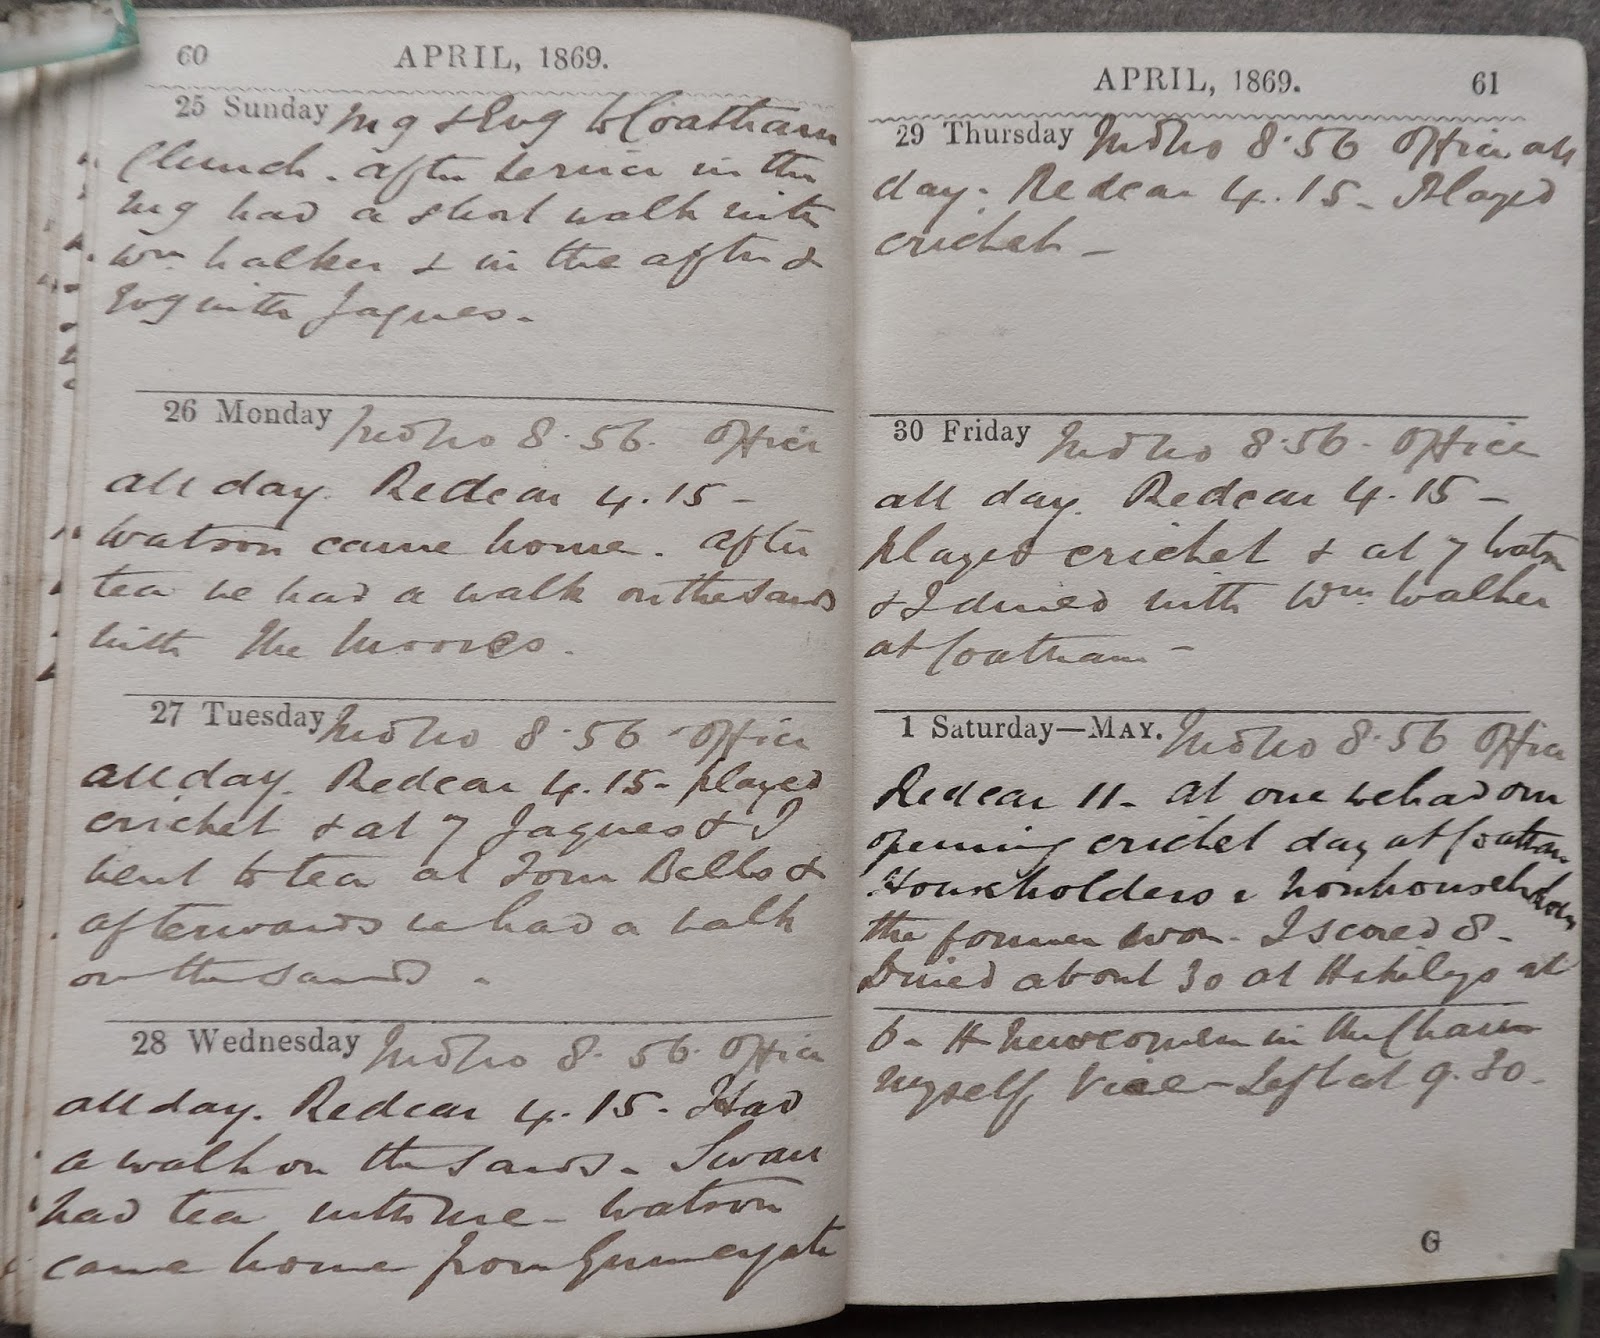 60 APRIL, 1869.
25 Sunday Mg & Evg to Coatham
Church. after service in the
Mg had a short walk with
Wm Walker & in the aftn &
Evg with Jaques.
26 Monday Mdbro 8.56. Office
all day. Redcar 4.15 -
Watson came home. after
tea we had a walk on the sands
with the Moores.
27 Tuesday Mdbro 8.56 - Office
all day. Redcar 4.15 - played
cricket & at 7 Jaques & I
went to tea at Tom Bells &
afterwards we had a walk
on the sands.
28 Wednesday Mdbro 8.56. Office
all day. Redcar 4.15 - Had
a walk on the sands - Swan
had tea with me - Watson
came home from
APRIL, 1869. 61
29 Thursday Mdbro 8.56 Office all
day. Redcar 4.15 - Played
cricket -
30 Friday Mdbro 8.56 - Office
all day. Redcar 4.15 -
played cricket & at 7 Watson
& I dined with Wm Walker
at Coatham -
1 Saturday—MAY. Mdbro 8.56 Office
Redcar 11 - at one we had our
opening cricket day at Coatham
Householders v Nonhouseholders
the former won - I scored 8 -
Dined about 30 at at
6 - H Newcomen in the Chair
myself Vice - Left at 9.30 -
G